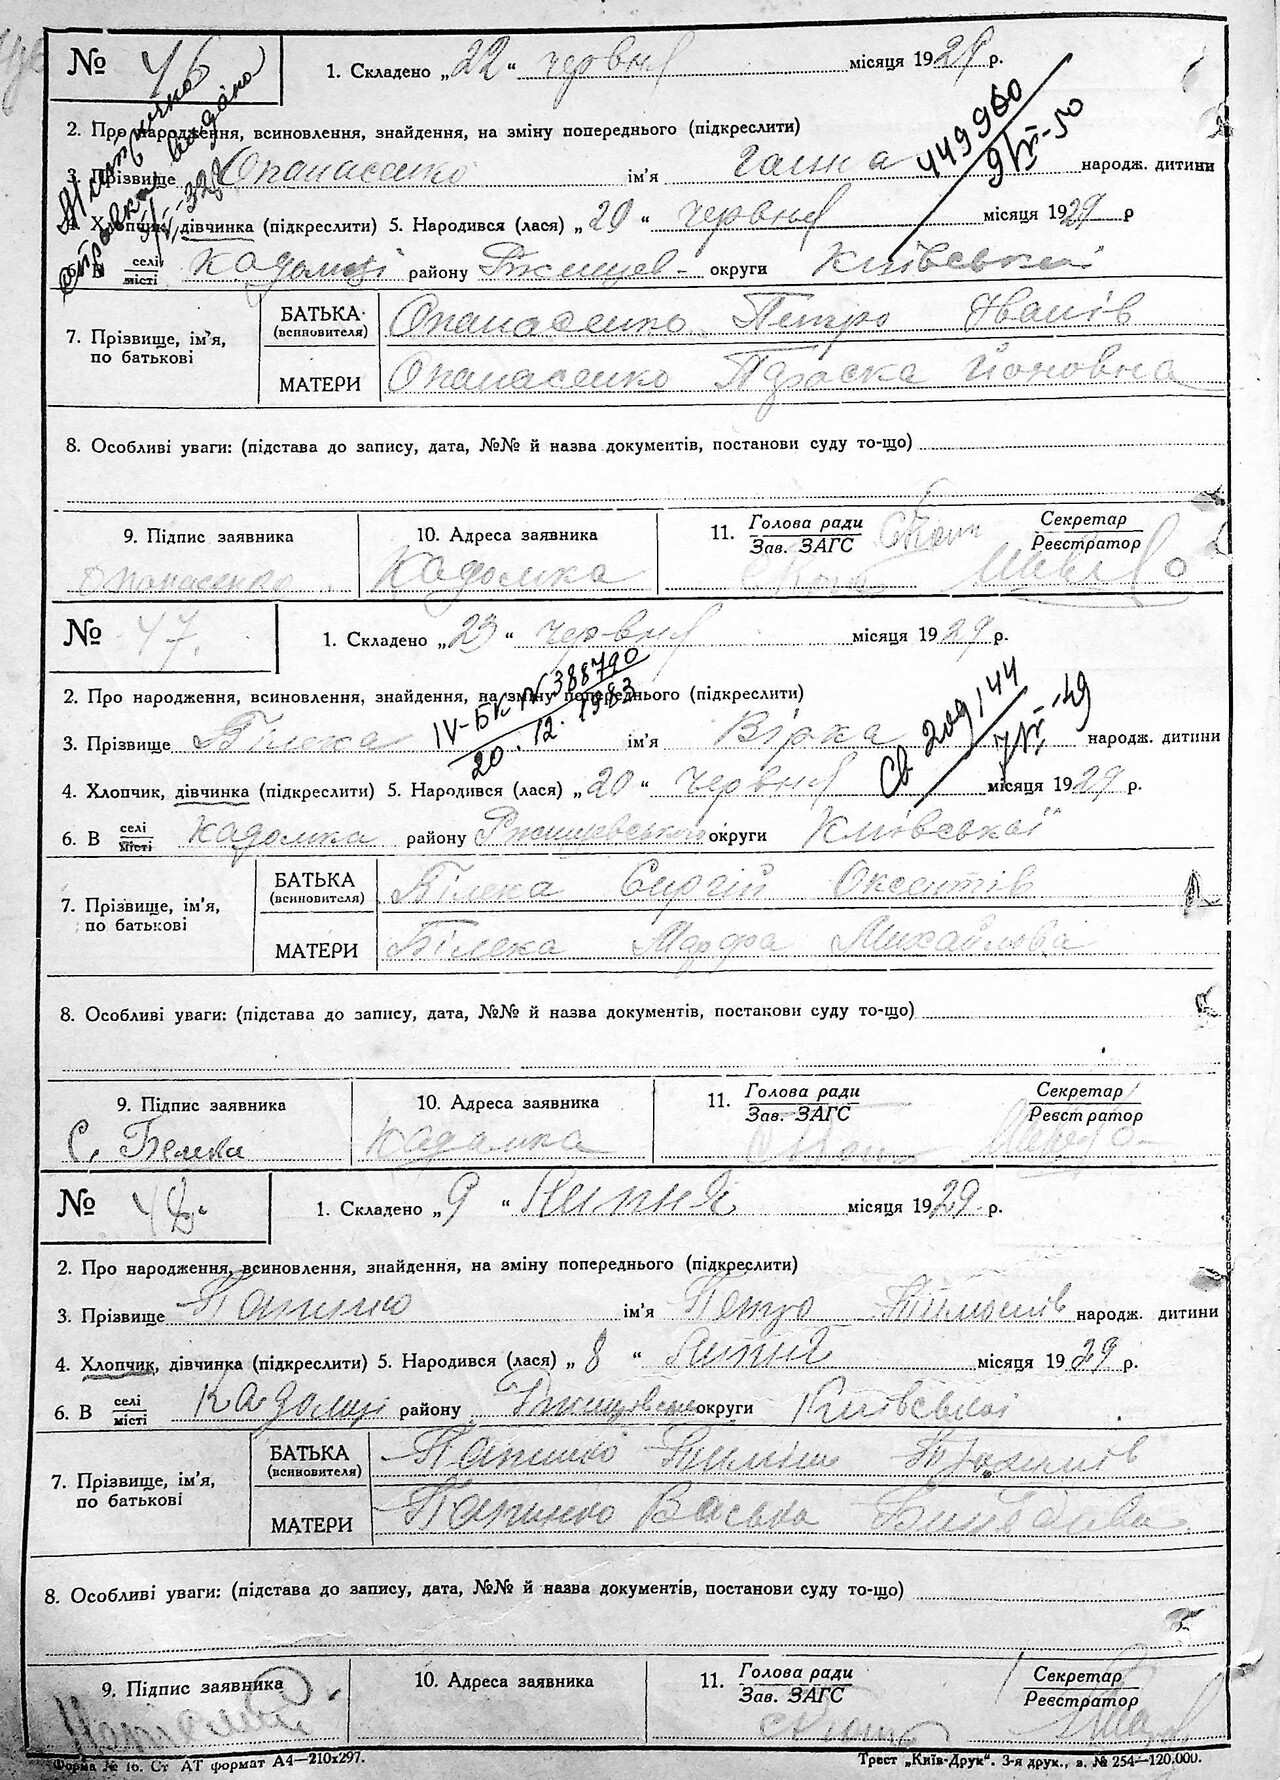 № 46
1. Складено „22“ червня місяця 1929 р.
2. Про народження, всиновлення, знайдення, на зміну попереднього (підкреслити)
449960
9/VI-50
3. Прізвище Опанасенко ім'я Галина народж. дитини
4. Хлопчик, дівчинка (підкреслити) 5. Народився (лася) „20“ червня місяця 1929 р
6. В селі місті Кадомці району Ржищев- округи Київської
7. Прізвище, ім'я, по батькові
БАТЬКА (всиновителя) Опанасенко Петро Іванів
МАТЕРИ Опанасенко Параска Йоновна
8. Особливі уваги: (підстава до запису, дата, №№ й назва документів, постанови суду то-що)
9. Підпис заявника
Опанасенко
10. Адреса заявника
Кадомка
11. Голова ради
Зав. ЗАГС
Секретар
Реєстратор
№ 47.
1. Складено „23“ червня місяця 1929 р.
2. Про народження, всиновлення, знайдення, на зміну попереднього (підкреслити)
IV-БК № 388790
20.12.1983
Св 209144
7/VI-49
3. Прізвище Білека ім'я Вірка народж. дитини
4. Хлопчик, дівчинка (підкреслити) 5. Народився (лася) „20“ червня місяця 1929 р.
6. В селі місті Кадомка району Ржищевського округи Київської
7. Прізвище, ім'я, по батькові
БАТЬКА (всиновителя) Білека Сергій Оксентів
МАТЕРИ Білека Марфа Михайлова
8. Особливі уваги: (підстава до запису, дата, №№ й назва документів, постакови суду то-що)
9. Підпис заявника
С. Белека
10. Адреса заявника
Кадомка
11. Голова ради
Зав. ЗАГС
Секретар
Реєстратор
№ 48.
1. Складено „9“ Липня місяця 1929 р.
2. Про народження, всиновлення, знайдення, на зміну попереднього (підкреслити)
3. Прізвище ім'я Петро Тимошів народж. дитини
4. Хлопчик, дівчинка (підкреслити) 5. Народився (лася) „8“ Липня місяця 1929 р.
6. В селі місті Кадомці району Ржищівське округи Київської
7. Прізвище, ім'я, по батькові
БАТЬКА (всиновителя) Тиміш
МАТЕРИ Васька
8. Особливі уваги: (підстава до запису, дата, №№ й назва документів, постанови суду то-що)
9. Підпис заявника
10. Адреса заявника
11. Голова ради
Зав. ЗАГС
Секретар
Реєстратор
Форма № 16. Ст АТ формат А4—210х297.
Трест „Київ-Друк“. 3-я друк., з. № 254—120.000.